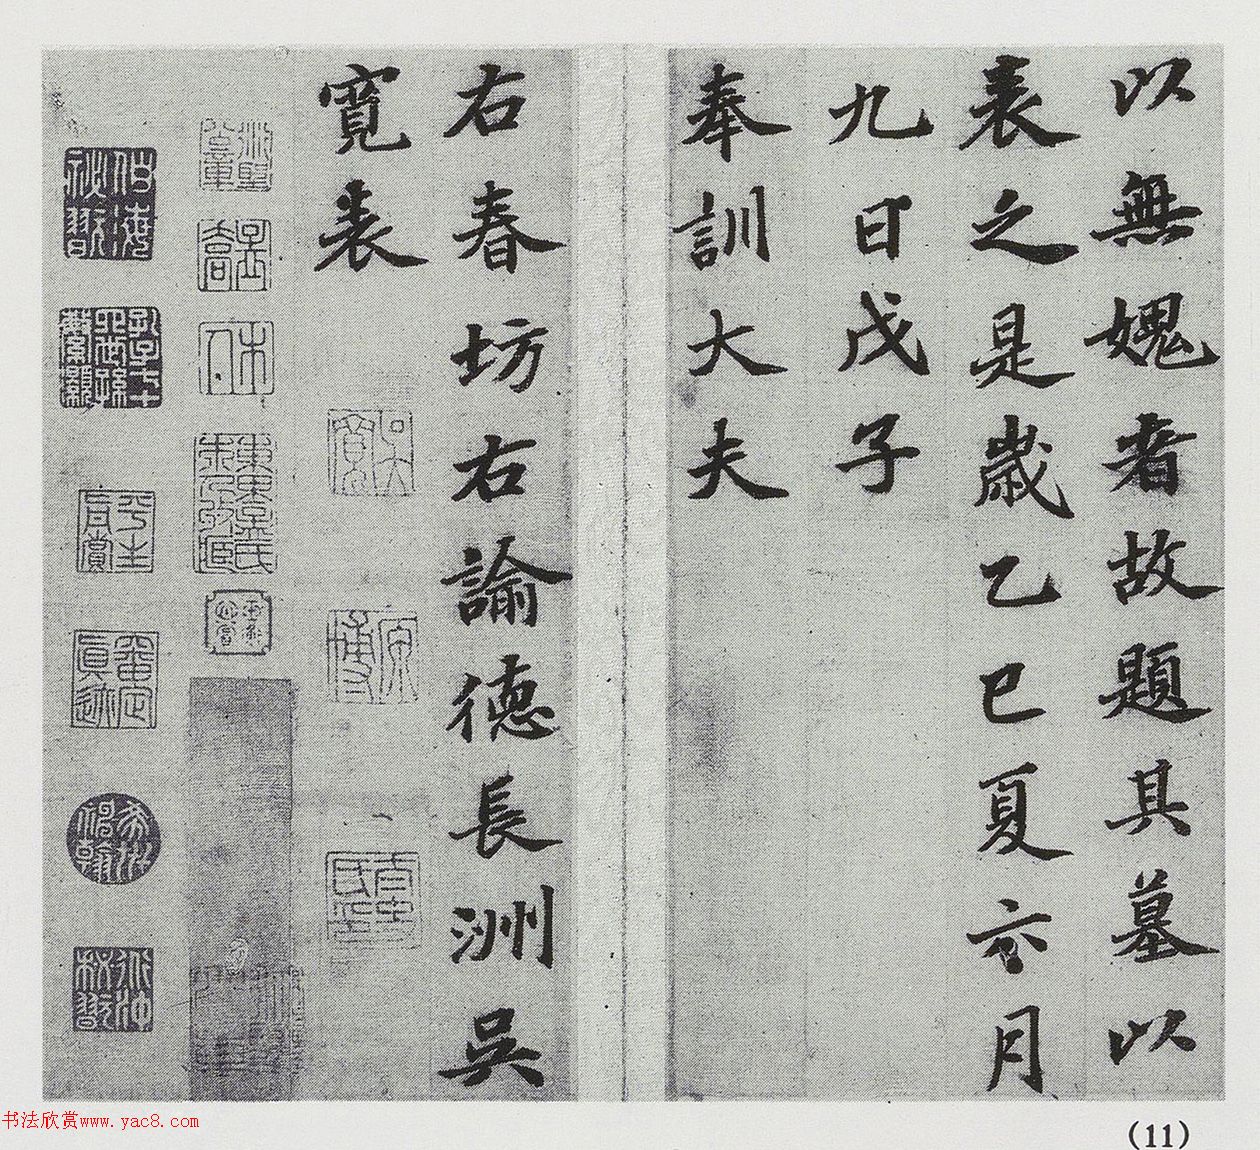 以無媿者故題其墓以
表之是歲乙巳夏六月
九日戊子
奉訓大夫
右春坊右諭德長洲吳
寬表
吳寬
原博
平生眞賞
審定眞迹
书法欣赏www.yac8.com
(11)